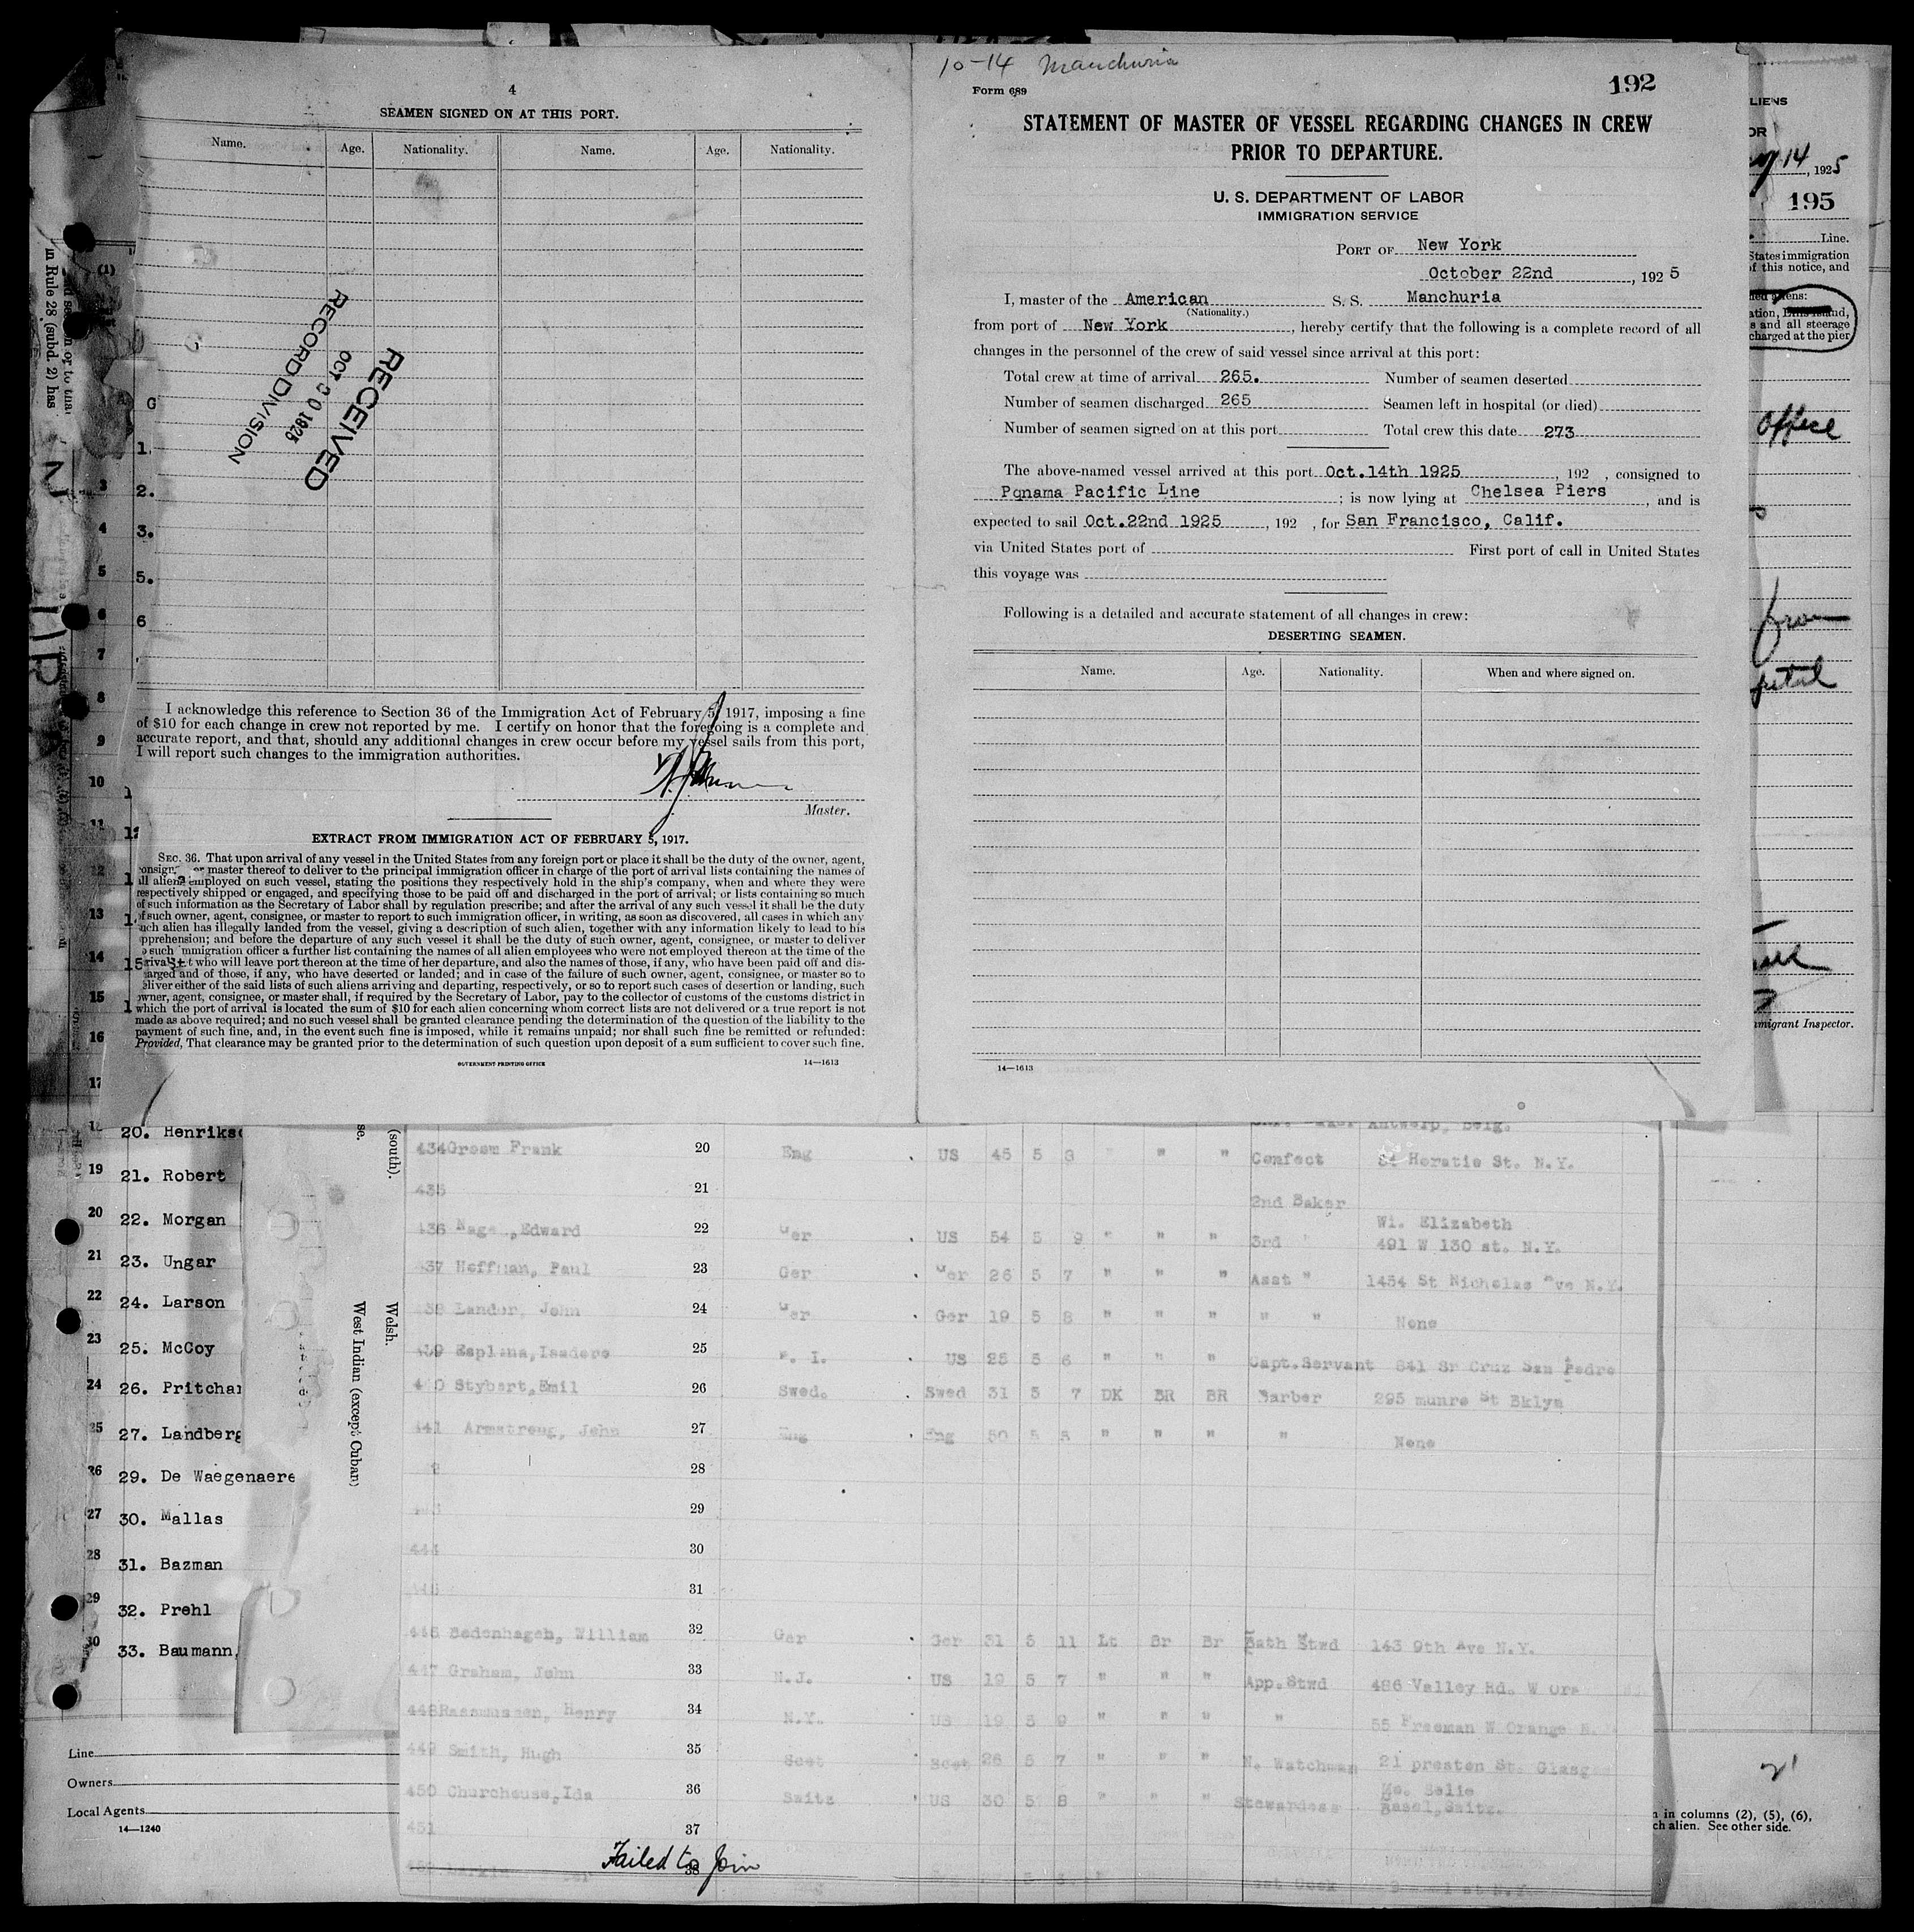 4
SEAMEN SIGNED ON AT THIS PORT.
Name. Age. Nationality. Name. Age. Nationality.
RECEIVED
OCT 1925
RECORD DIVISION
I acknowledge this reference to Section 36 of the Immigration Act of February 5, 1917, imposing a fine
of $10 for each change in crew not reported by me. I certify on honor that the foregoing is a complete and
accurate report, and that, should any additional changes in crew occur before my vessel sails from this port,
I will report such changes to the immigration authorities.
Master.
EXTRACT FROM IMMIGRATION ACT OF FEBRUARY 5, 1917.
SEC. 36. That upon arrival of any vessel in the United States from any foreign port or place it shall be the duty of the owner, agent,
or master thereof to deliver to the principal immigration officer in charge of the port of arrival lists containing the names of
all aliens employed on such vessel, stating the positions they respectively hold in the ship's company, when and where they were
respectively shipped or engaged, and specifying those to be paid off and discharged in the port of arrival; or lists containing so much
of such information as the Secretary of Labor shall by regulation prescribe; and after the arrival of any such vessel it shall be the duty
of such owner, agent, consignee, or master to report to such immigration officer, in writing, as soon as discovered, all cases in which any
such alien has illegally landed from the vessel, giving a description of such alien, together with any information likely to lead to his
apprehension; and before the departure of any such vessel it shall be the duty of such owner, agent, consignee, or master to deliver
to such immigration officer a further list containing the names of all alien employees who were not employed thereon at the time of the
who will leave port thereon at the time of her departure, and also the names of those, if any, who have been paid off and dis-
charged and of those, if any, who have deserted or landed; and in case of the failure of such owner, agent, consignee, or master so to
deliver either of the said lists of such aliens arriving and departing, respectively, or so to report such cases of desertion or landing, such
owner, agent, consignee, or master shall, if required by the Secretary of Labor, pay to the collector of customs of the customs district in
which the port of arrival is located the sum of $10 for each alien concerning whom correct lists are not delivered or a true report is not
made as above required; and no such vessel shall be granted clearance pending the determination of the question of the liability to the
payment of such fine, and, in the event such fine is imposed, while it remains unpaid; nor shall such fine be remitted or refunded:
Provided, That clearance may be granted prior to the determination of such question upon deposit of a sum sufficient to cover such fine.
GOVERNMENT PRINTING OFFICE 14—1613
10-14 Manchuria
Form 689
192
STATEMENT OF MASTER OF VESSEL REGARDING CHANGES IN CREW
PRIOR TO DEPARTURE.
U. S. DEPARTMENT OF LABOR
IMMIGRATION SERVICE
PORT OF New York
October 22nd, 192 5
I, master of the American S. S. Manchuria
(Nationality.)
from port of New York, hereby certify that the following is a complete record of all
changes in the personnel of the crew of said vessel since arrival at this port:
Total crew at time of arrival 265. Number of seamen deserted
Number of seamen discharged 265 Seamen left in hospital (or died)
Number of seamen signed on at this port Total crew this date 273
The above-named vessel arrived at this port Oct.14th 1925, 192 , consigned to
Pqnama Pacific Line ; is now lying at Chelsea Piers, and is
expected to sail Oct.22nd 1925, 192 , for San Francisco, Calif.
via United States port of First port of call in United States
this voyage was
Following is a detailed and accurate statement of all changes in crew:
DESERTING SEAMEN.
Name. Age. Nationality. When and where signed on.
14—1613
LIENS
OR
14, 1925
195
Line.
States immigration
of this notice, and
ation, Ellis Island,
s and all steerage
charged at the pier
office
from
Immigrant Inspector.
in Rule 28 (subd. 2) has
(1)
1.
3 2.
4 3.
5 5.
6 6
7
8
9
10
11
12
13
14
15
16
17
20. Henrikse
19 21. Robert
20 22. Morgan
21 23. Ungar
22 24. Larson
23 25. McCoy
24 26. Pritchar
25 27. Landberg
26 29. De Waegenaere
27 30. Mallas
28 31. Bazman
29 32. Prehl
30 33. Baumann,
Line
Owners
Local Agents
14—1240
(south).
Welsh.
West Indian (except Cuban)
Antwerp, Belg.
434 Groom Frank 20 Eng US 45 5 8 " " " Confect Horatio St. N.Y.
435 21 2nd Baker
436 Edward 22 Ger US 54 5 9 " " " 3rd " Wi. Elizabeth
491 W 130 st. N.Y.
437 Hoffman, Paul 23 Ger Ger 26 5 7 " " " Asst " 1454 St Nicholas Ave N.Y.
438 Lander, John 24 Ger Ger 19 5 8 " " " " " None
439 Esplana, Isadero 25 P. I. US 25 5 6 " " " Capt.Servant San Pedro
440 Stybert,Emil 26 Swed. Swed 31 5 7 DK BR BR Barber 295 munro St Bklyn
441 Armstrong, John 27 Eng Eng 50 5 8 " " " " None
28
29
444 30
445 31
446 Bedenhagen, William 32 Ger Ger 31 5 11 Lt Br Br Bath Stwd 143 9th Ave N.Y.
447 Graham, John 33 N.J. US 19 5 7 " " " App.Stwd 486 Valley Rd. W Ora
448 Rassmussen, Henry 34 N.Y. US 19 5 9 " " " " 55 Freeman W Orange N.
449 Smith, Hugh 35 Scot Scot 26 5 7 " " " N. Watchman 21 preston St. Glasg
450 Churchouse,Ida 36 Switz US 30 5 8 " " " Stewardess
Basel,Switz.
451 37
Failed to Join
38
in columns (2), (5), (6),
ch alien. See other side.